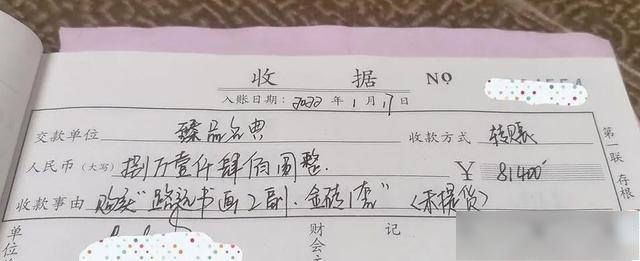 收 据 NO
入账日期：2022 年 1 月 17 日
交款单位 臻品名典 收款方式 转账
人民币(大写) 捌万壹仟肆佰圆整 ¥ 81400
收款事由 购买"路 书画2副.金砖1套" (未提货)
第一联 存根
单位
财会
记